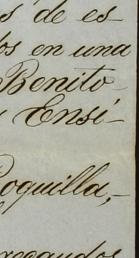 s de es
os en una
Benito
Ensi-
oquilla,